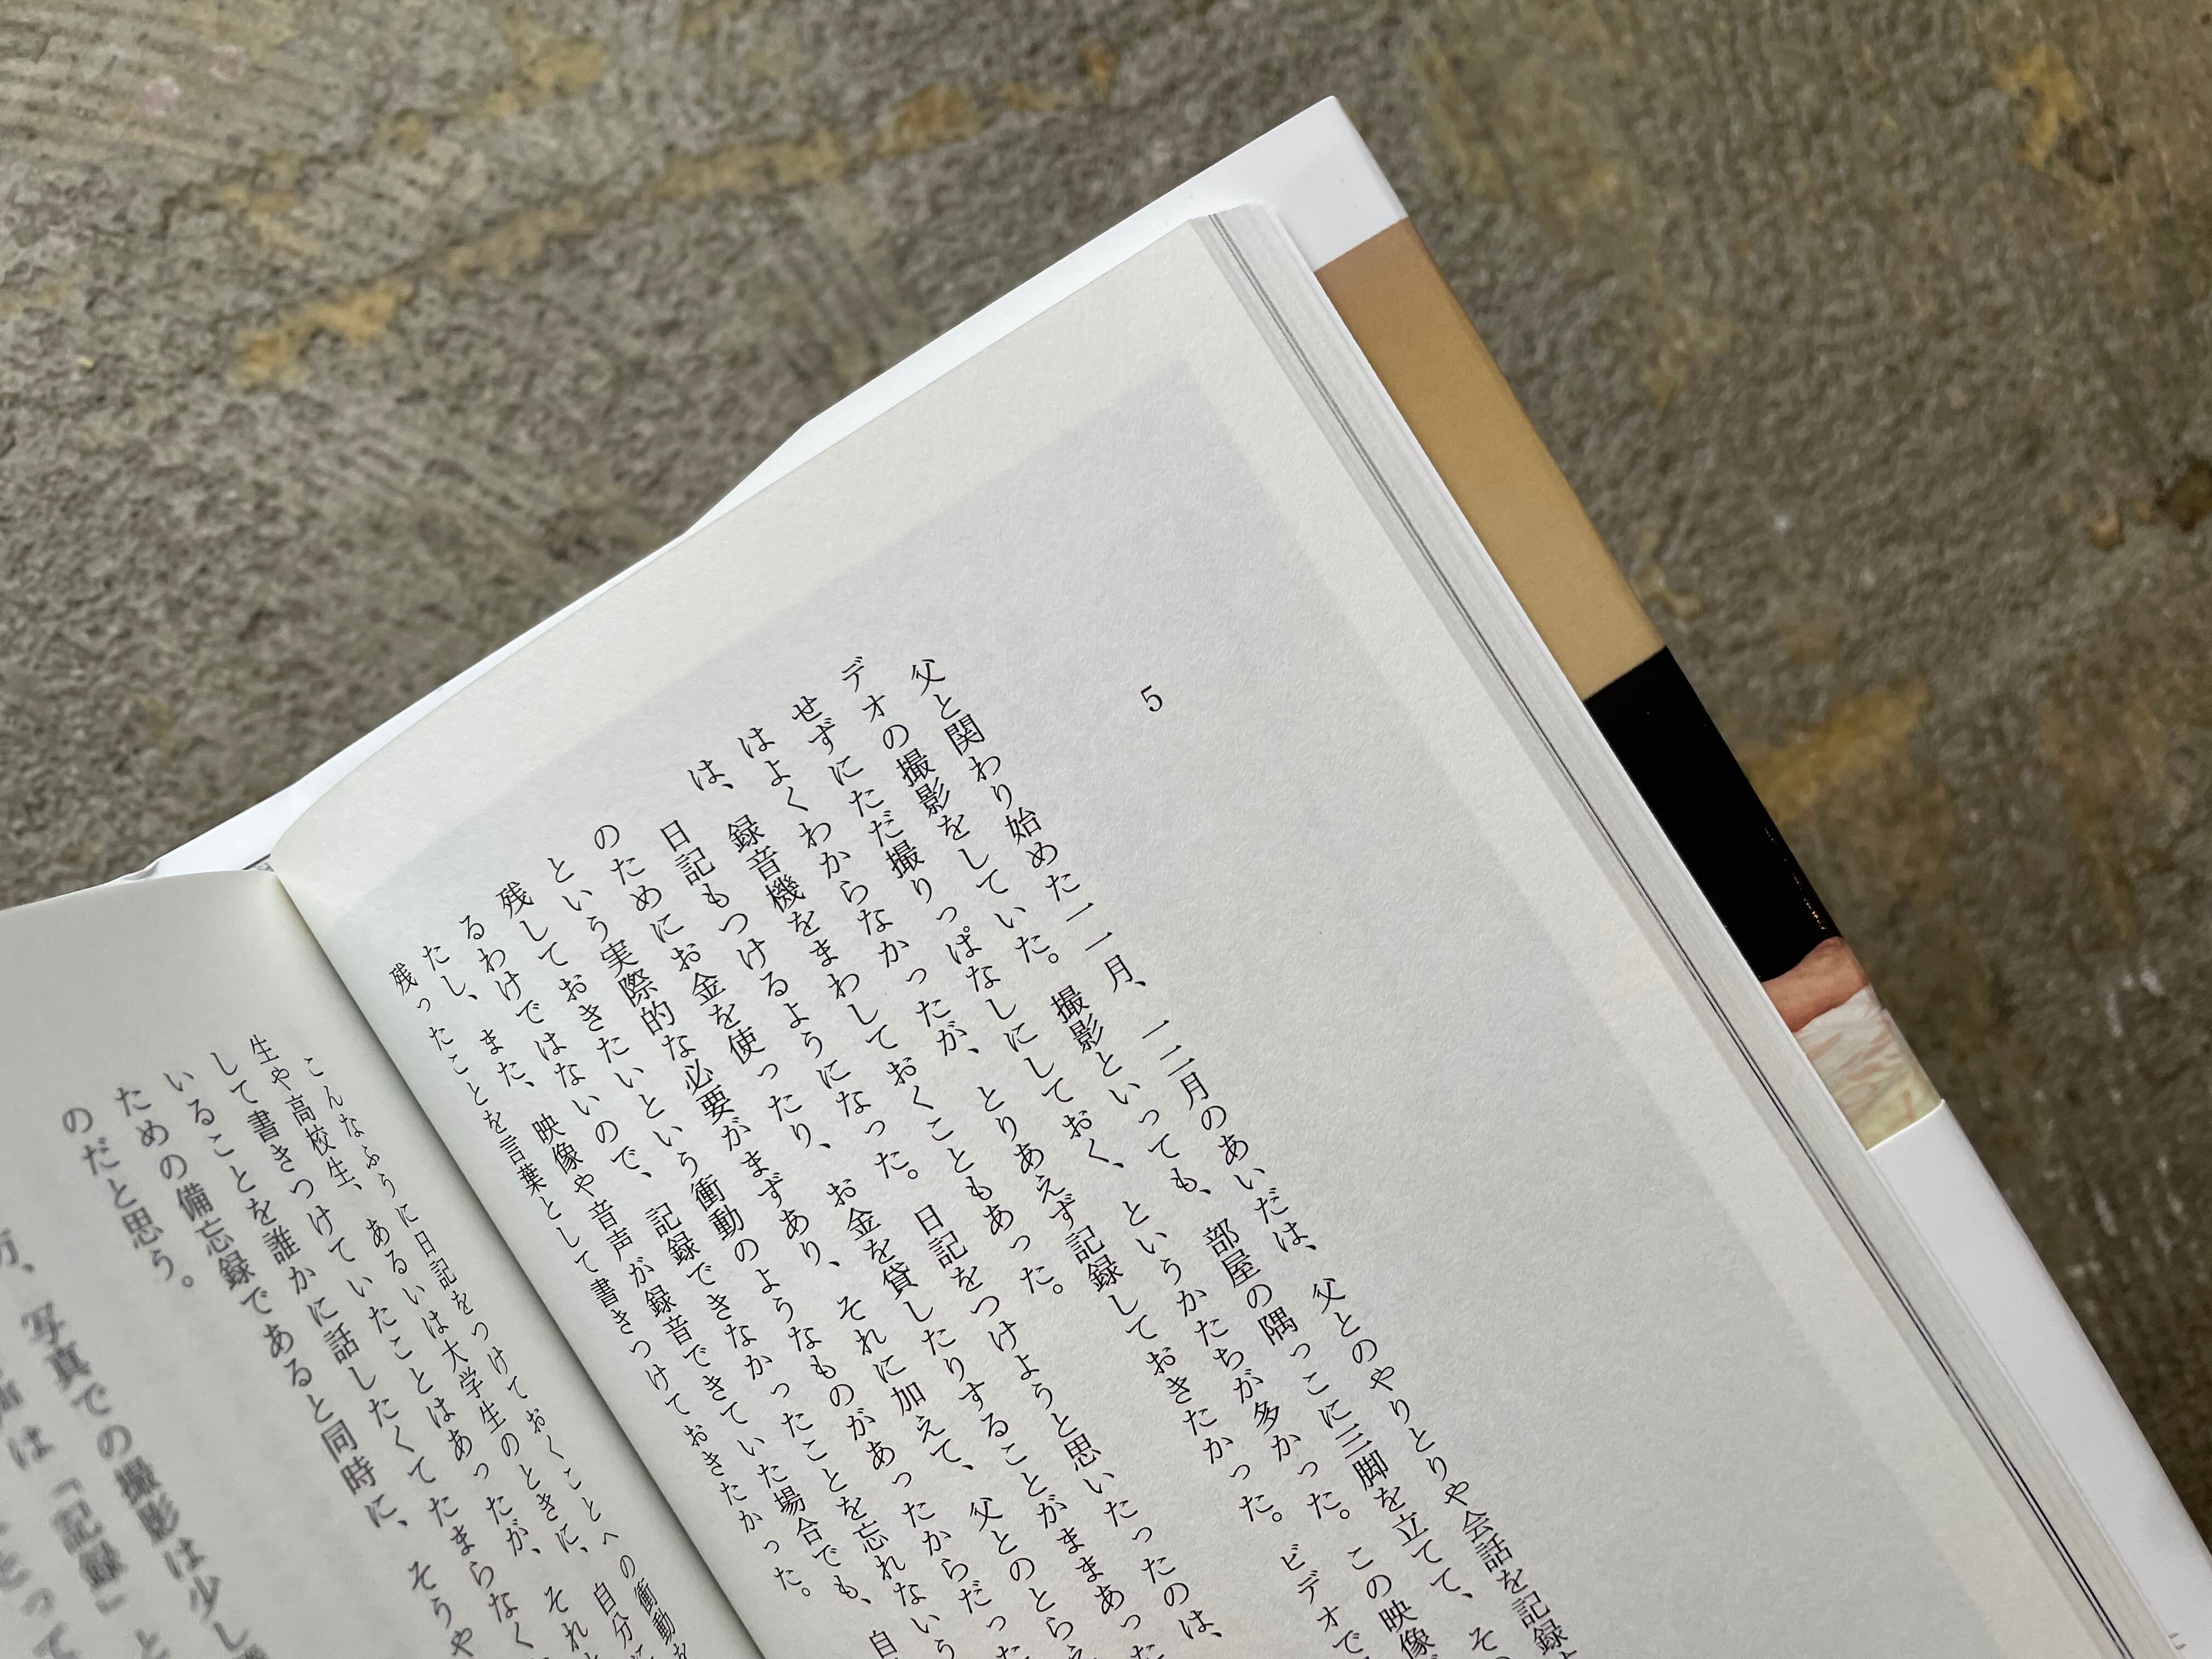 5
父と関わり始めた一一月、一二月のあいだは、父とのやりとりや会話を記録
デオの撮影をしていた。撮影といっても、部屋の隅っこに三脚を立てて、そ
せずにただ撮りっぱなしにしておく、というかたちが多かった。この映像
はよくわからなかったが、とりあえず記録しておきたかった。ビデオで
は、録音機をまわしておくこともあった。
日記もつけるようになった。日記をつけようと思いたったのは、
のためにお金を使ったり、お金を貸したりすることがままあった
という実際的な必要がまずあり、それに加えて、父とのとらえ
残しておきたいという衝動のようなものがあったからだった
るわけではないので、記録できなかったことを忘れないう
たし、また、映像や音声が録音できていた場合でも、自
残ったことを言葉として書きつけておきたかった。
こんなふうに日記をつけておくことへの衝動を
生や高校生、あるいは大学生のときに、自分に
して書きつけていたことはあったが、それ
いることを誰かに話したくてたまらなく
ための備忘録であると同時に、そうや
のだと思う。
方、写真での撮影は少し
は「記録」と
とって